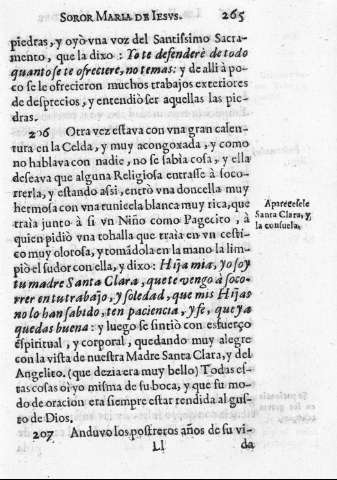 SOROR MARIA DE IESVS. 265
piedras, y oyò vna voz del Santissimo Sacra-
mento, que la dixo: Yo te defenderè de todo
quanto se te ofreciere, no temas: y de alli à po-
co se le ofrecieron muchos trabajos exteriores
de desprecios, y entendiò ser aquellas las pie-
dras.
206 Otra vez estava con vna gran calen-
tura en la Celda, y muy acongoxada, y como
no hablava con nadie, no se sabia cosa, y ella
deseava que alguna Religiosa entrasse à soco-
rrerla, y estando assi, entrò vna doncella muy
hermosa con vna tunicela blanca muy rica, que
traia junto à si vn Niño como Pagecito, à
quien pidiò vna tohalla que traia en vn cesti-
co muy olorosa, y tomandola en la mano la lim-
piò el sudor con ella, y dixo: Hija mia, yo soy
tu madre Santa Clara, que te vengo à soco-
rrer en tu trabajo, y soledad, que mis Hijas
no lo han sabido, ten paciencia, y fè, que ya
quedas buena: y luego se sintiò con esfuerço
espiritual, y corporal, quedando muy alegre
con la vista de nuestra Madre Santa Clara, y del
Angelito. (que dezia era muy bello) Todas es-
tas cosas oì yo misma de su boca, y que su mo-
do de oracion era siempre estar rendida al gus-
to de Dios.
207 Anduvo los postreros años de su vi-
Ll da
Aparecesele
Santa Clara, y
la consuela.